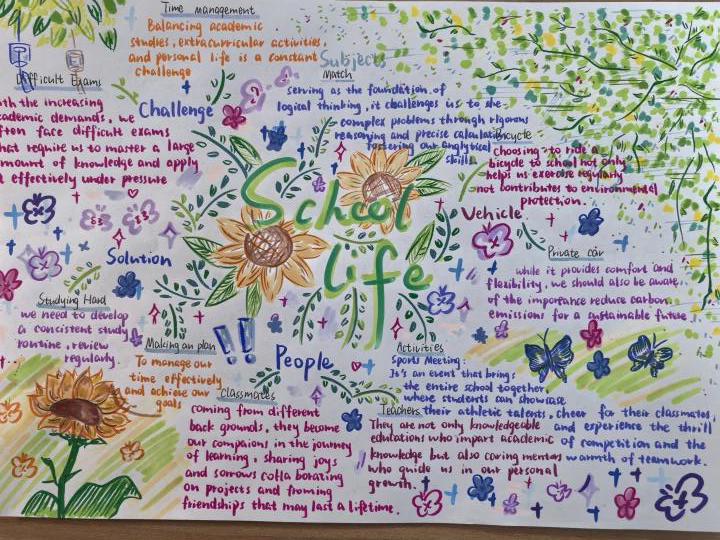 Time management
Balancing academic
studies, extracurricular activities
and personal life is a constant
challenge
Difficult Exams
the increasing
academic demands, we
often face difficult exams
that require us to master a large
amount of knowledge and apply
effectively under pressure.
Challenge
Subjects
Match
serving as the foundation of
logical thinking, it challenges us to
complex problems through rigorous
reasoning and precise
fostering our analytical
skills
Bicycle
choosing to ride a
bicycle to school not only
helps us exercise regularly
not contributes to environmental
protection.
School
life
Vehicle
Private car
while it provides comfort and
flexibility, we should also be aware
of the importance reduce carbon
emissions for a sustainable future.
Solution
Studying Hard
we need to develop
a consistent study
routine, review
regularly.
Making an plan
To manage our
time effectively
and achieve our
goals
!!
People
Classmates
coming from different
back grounds, they become
our compaions in the journey
of learning, sharing joys
and sorrows colla borating
on projects and froming
friendships that may last a lifetime.
Activities
Sports Meeting:
It's an event that brings
the entire school together,
where students can showcase
their athletic talents, cheer for their classmates,
and experience the thrill
of competition and the
warmth of teamwork.
Teachers
They are not only knowledgeable
educations who impart academic
knowledge but also caring mentors
who guide us in our personal
growth.